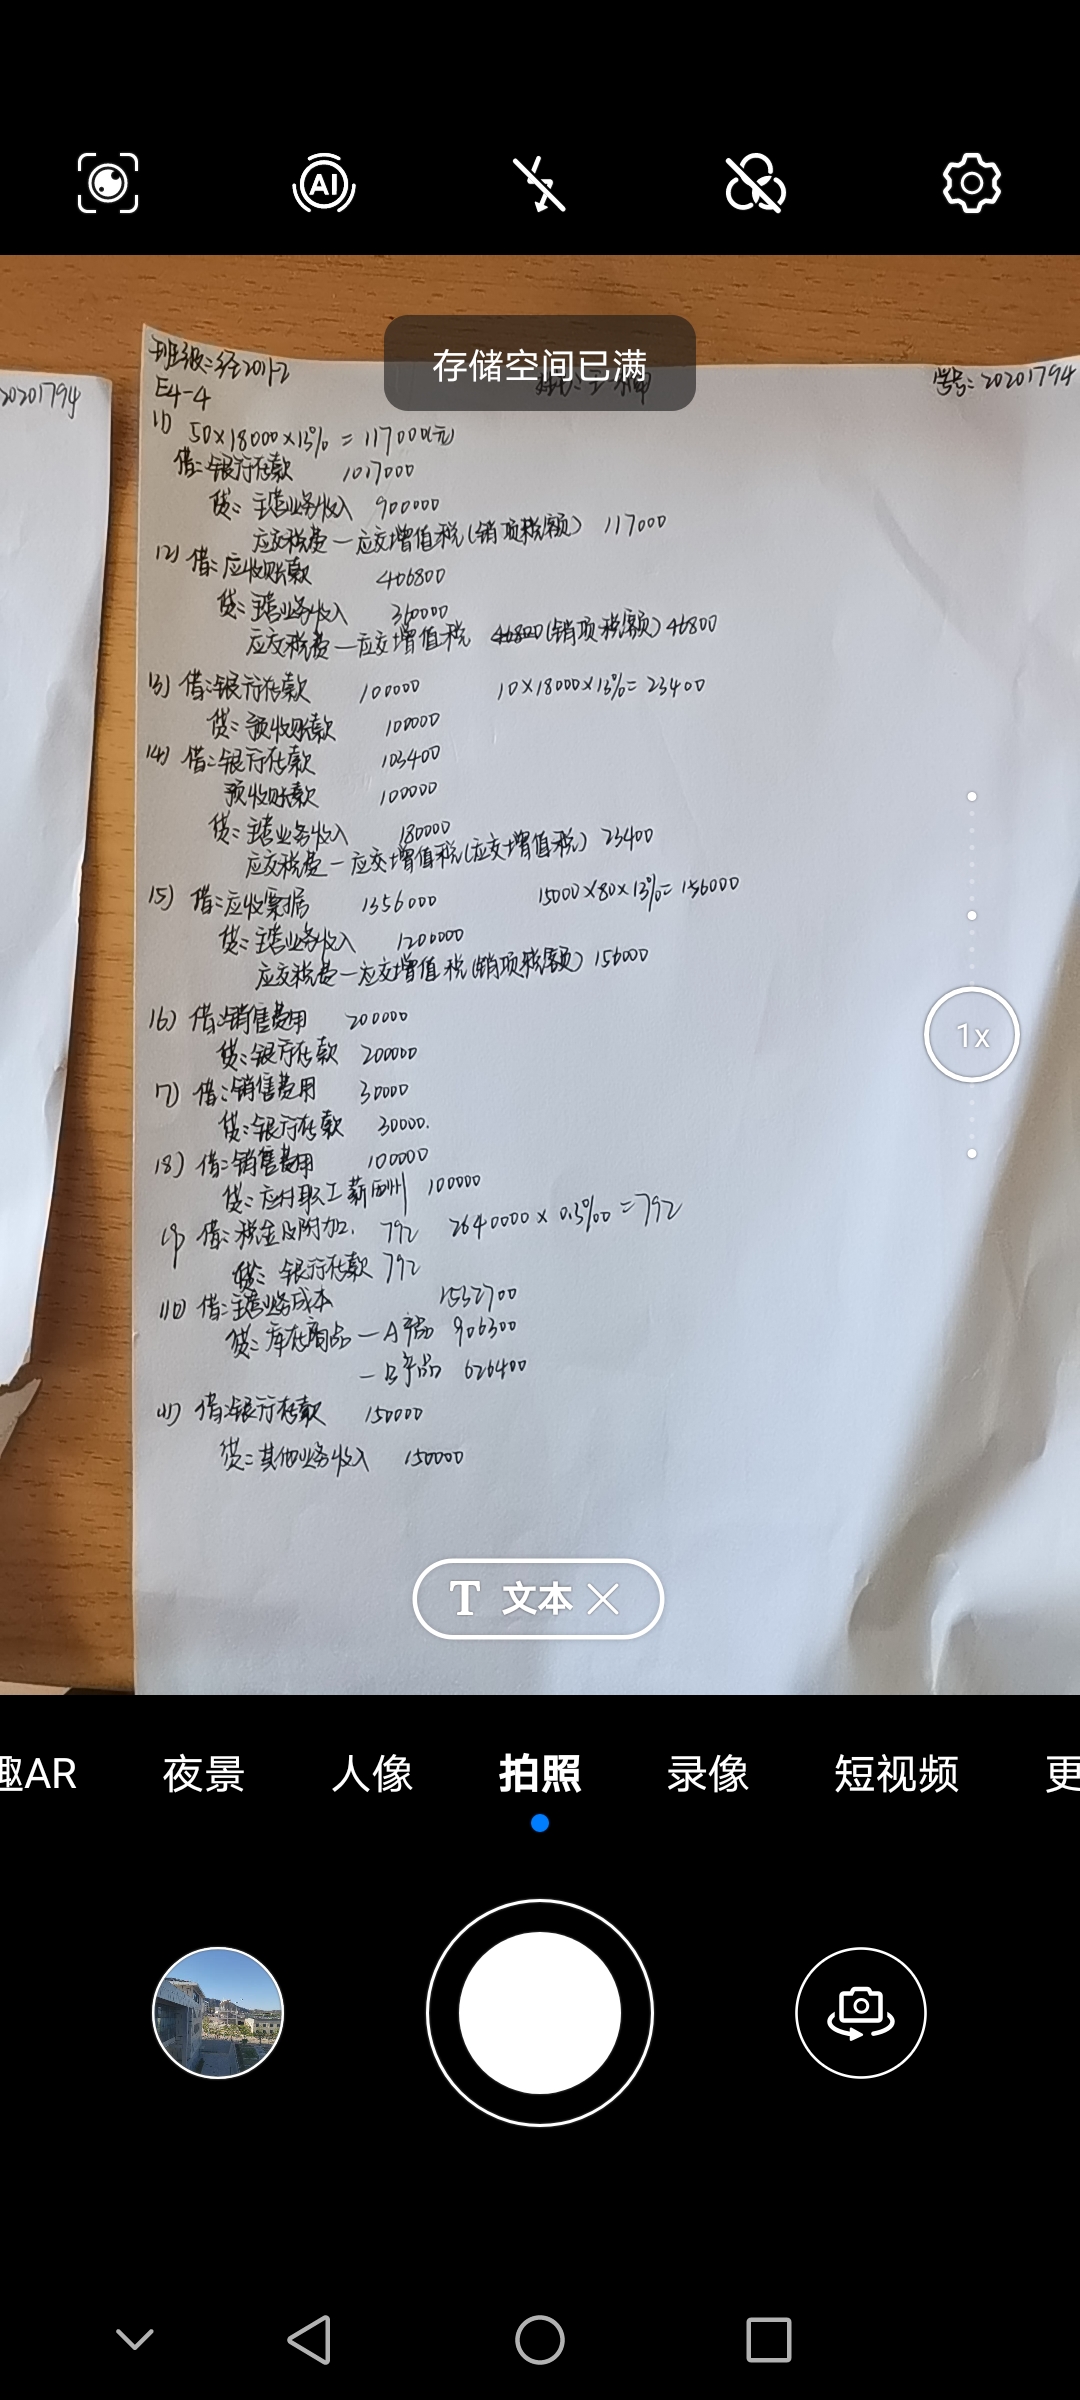 AI
存储空间已满
20201794
班级:经201-2
学号:20201794
E4-4
(1) 50×18000×13% = 117000(元)
借:银行存款 1017000
贷:主营业务收入 900000
应交税费—应交增值税(销项税额) 117000
(2) 借:应收账款 406800
贷:主营业务收入 360000
应交税费—应交增值税 46800 (销项税额) 46800
(3) 借:银行存款 100000 10×18000×13%=23400
贷:预收账款 100000
(4) 借:银行存款 103400
预收账款 100000
贷:主营业务收入 180000
应交税费—应交增值税(应交增值税) 23400
(5) 借:应收票据 1356000 15000×80×13%=156000
贷:主营业务收入 1200000
应交税费—应交增值税(销项税额) 156000
(6) 借:销售费用 200000
贷:银行存款 200000
7) 借:销售费用 30000
贷:银行存款 30000.
(8) 借:销售费用 100000
贷:应付职工薪酬 100000
(9) 借:税金及附加. 792 2640000×0.3‰=792
贷:银行存款 792
(10) 借:主营业务成本 1532700
贷:库存商品—A产品 906300
—B产品 626400
(11) 借:银行存款 150000
贷:其他业务收入 150000
1x
T 文本
趣AR 夜景 人像 拍照 录像 短视频 更